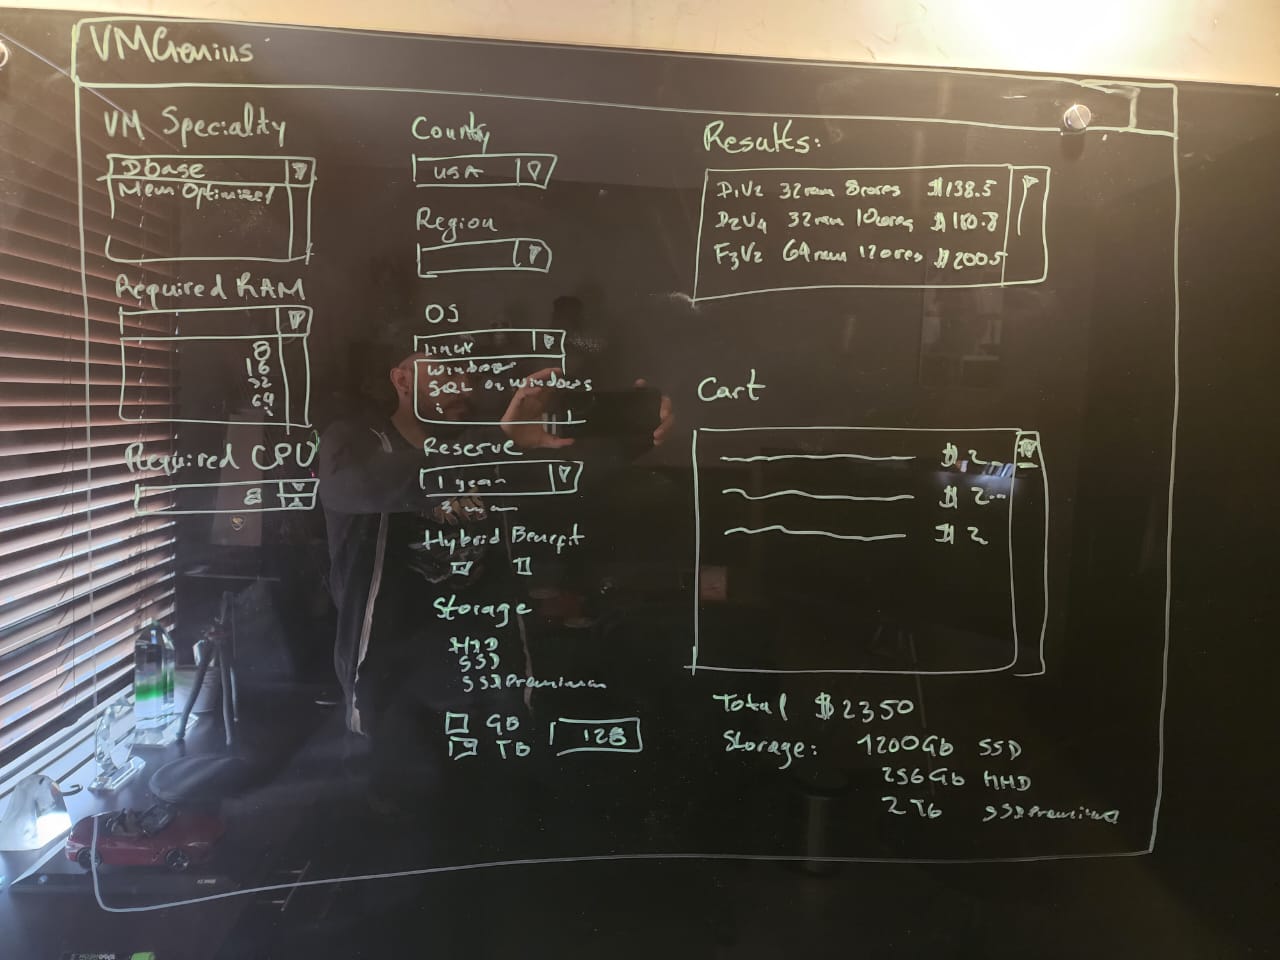 VMGenius
VM Speciality
Dbase
Mem Optimized
Required RAM
8
16
32
64
Required CPU
8
Country
USA
Region
OS
Linux
Windows
SQL on Windows
Reserve
1 year
3
Hybrid Benefit
Storage
HDD
SSD
SSD Premium
GB
TB
128
Results:
D1V2 32ram 8cores $138.5
D2V4 32ram 10cores $180.8
F3V2 64ram 12ores $200.5
Cart
$ 2...
$ 2...
$ 2
Total $2350
Storage: 1200Gb SSD
256Gb HHD
2Tb SSDPremium